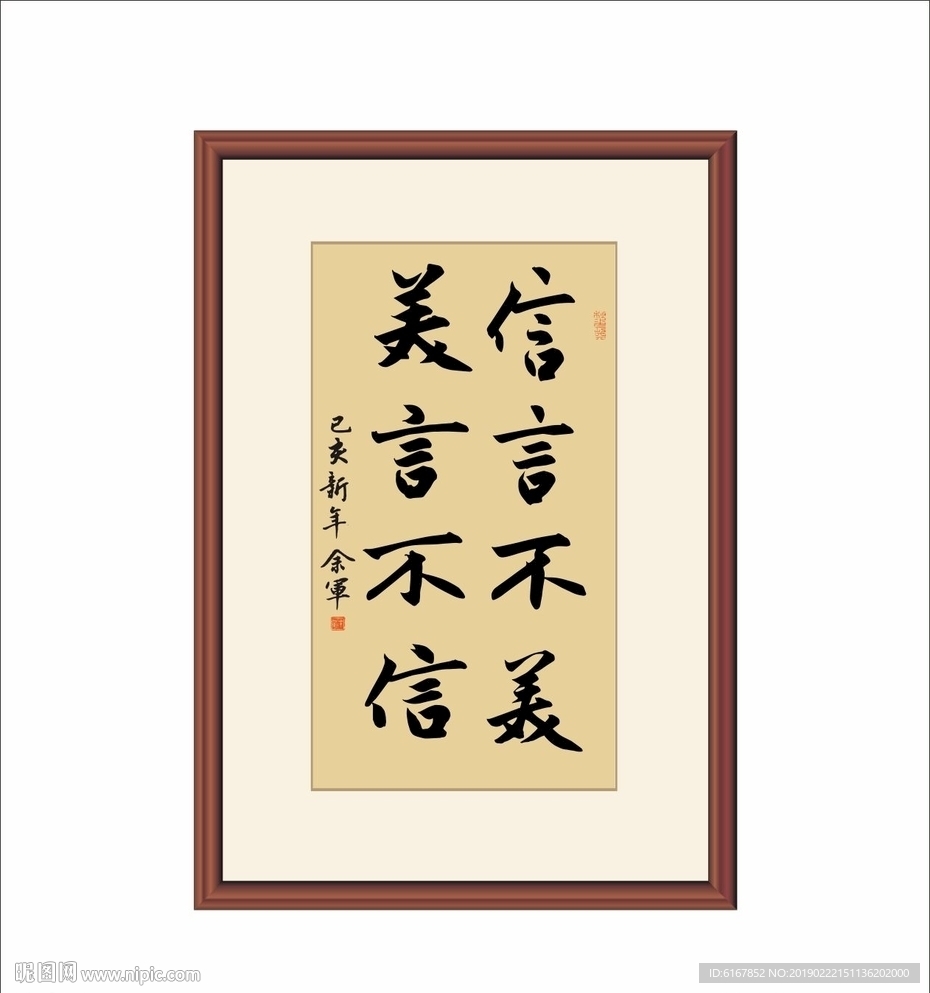 信言不美
美言不信
己亥新年 余軍
昵图网 www.nipic.com
ID:6167852 NO:20190222151136202000